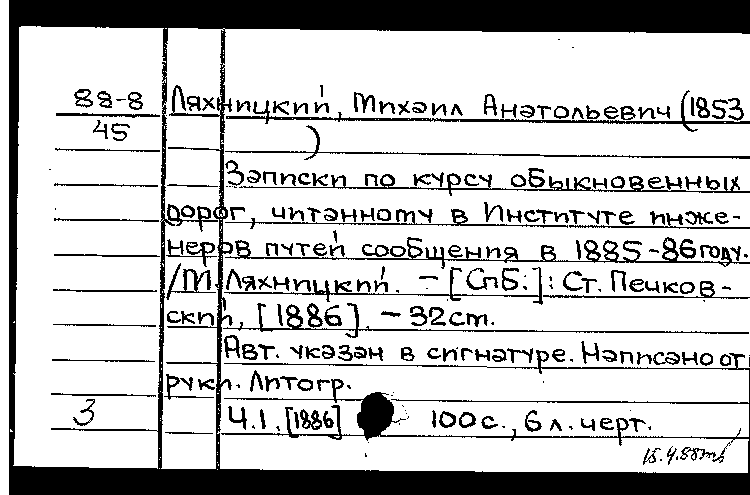 88-8 Ляхницкий, Михаил Анатольевич (1853
45 )
Записки по курсу обыкновенных
дорог, читанному в Институте инже-
неров путей сообщения в 1885-86 году.
/М. Ляхницкий. - [СПб.]: Ст. Печков-
ский, [1886]. - 32 см.
Авт. указан в сигнатуре. Написано от
руки. Литогр.
3 Ч.1. [1886] 100 с., 6 л. черт.
15.4.88